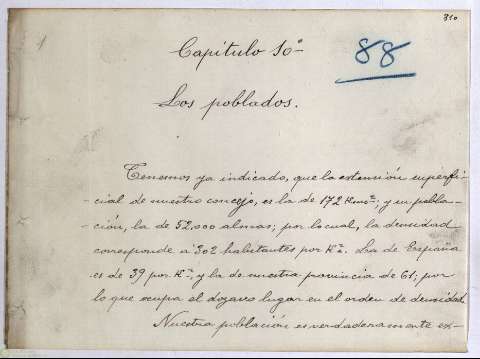 310
88
Capítulo 10º
Los poblados.
Tenemos ya indicado, que la extensión superfi-
-cial de nuestro concejo, es la de 172 Kms²; y su pobla-
ción, la de 52.000 almas; por lo cual, la densidad
corresponde á 302 habitantes por K². La de España
es de 39 por K²; y la de nuestra provincia de 61; por
lo que ocupa el dozavo lugar en el orden de densidad.
Nuestra población es verdaderamente ex-